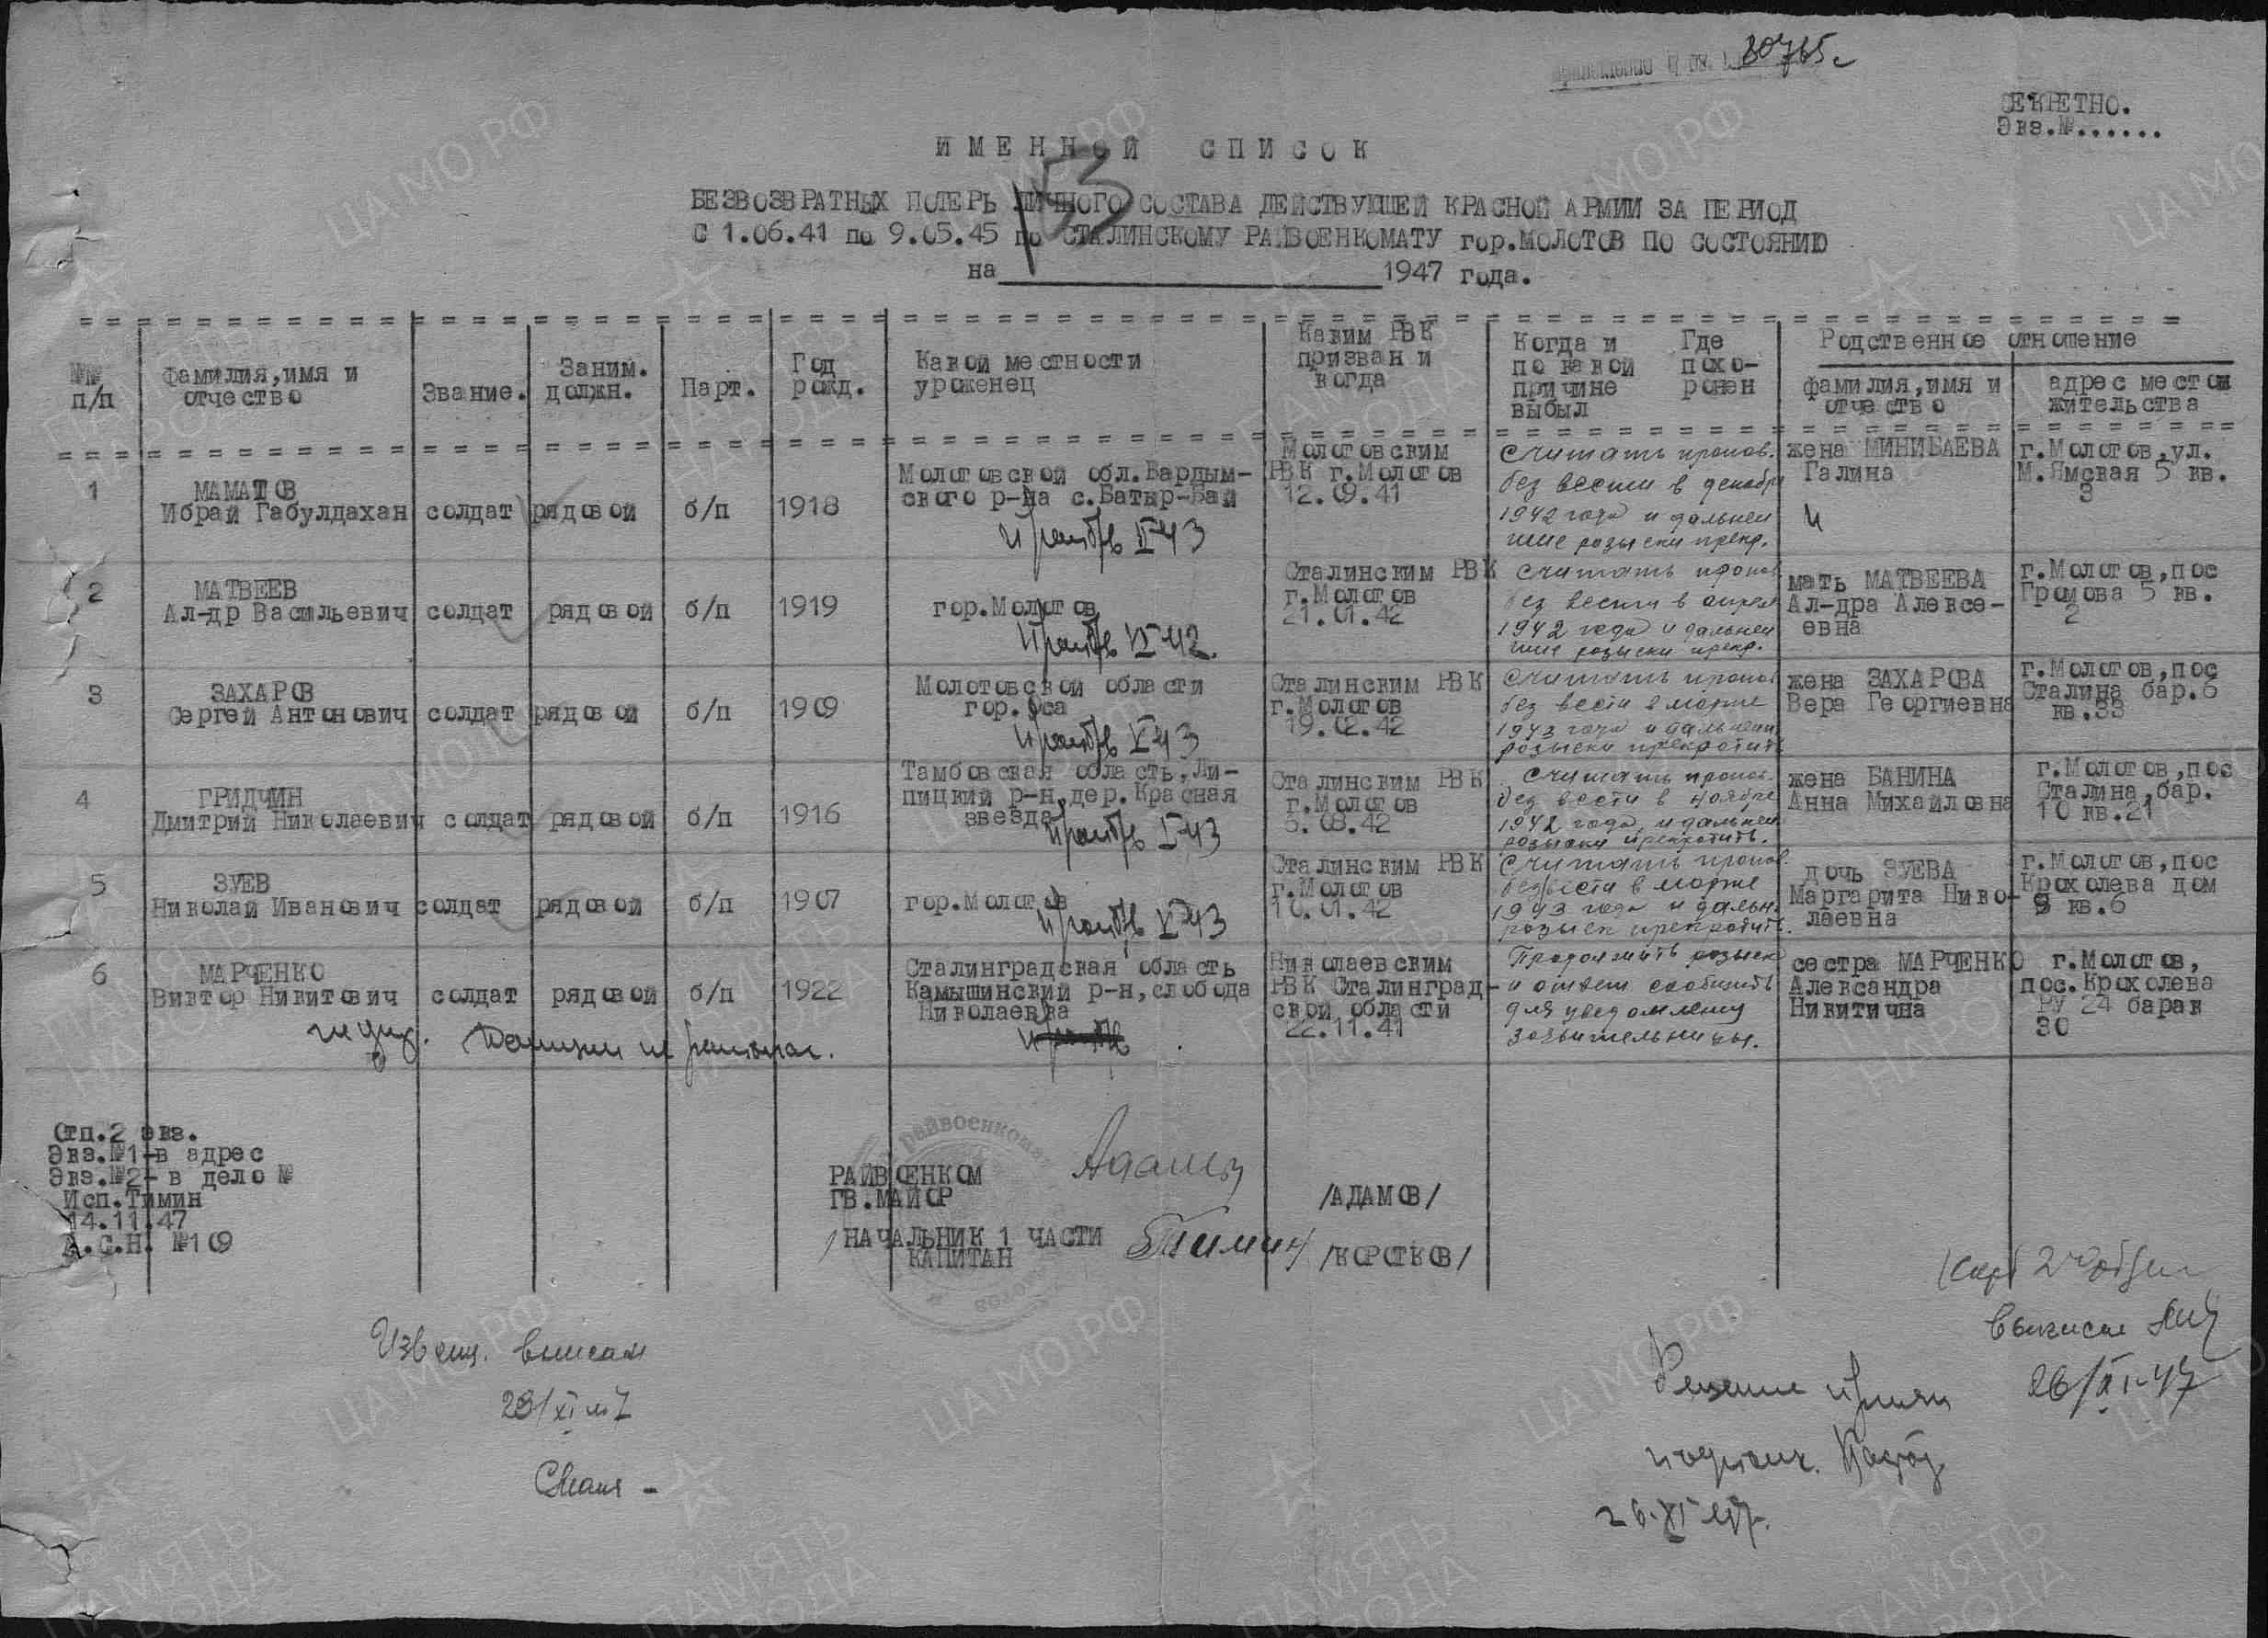 30765с
СЕКРЕТНО.
Экз.№......
ИМЕННОЙ СПИСОК
БЕЗВОЗВРАТНЫХ ПОТЕРЬ ЛИЧНОГО СОСТАВА ДЕЙСТВУЮЩЕЙ КРАСНОЙ АРМИИ ЗА ПЕРИОД
С 1.06.41 по 9.05.45 по СТАЛИНСКОМУ РАЙВОЕНКОМАТУ гор.МОЛОТОВ ПО СОСТОЯНИЮ
на 1947 года.
№№ п/п
Фамилия,имя и отчество
Звание.
Заним. должн.
Парт.
Год рожд.
Какой местности уроженец
Каким РВК призван и когда
Когда и по какой причине выбыл
Где похо-ронен
Родственное отношение
фамилия,имя и отчество
адрес местожительства
1
МАМАТОВ
Ибрай Габулдахан
солдат
рядовой
б/п
1918
Молотовской обл.Бардым-
ского р-на с.Батыр-Бай
Молотовским
РВК г.Молотов
12.09.41
Считать пропав.
без вести в декабре
1942 года и дальней
шие розыски прекр.
жена МИНИБАЕВА
Галина
г.Молотов,ул.
М.Ямская 5 кв.
3
2
МАТВЕЕВ
Ал-др Васильевич
солдат
рядовой
б/п
1919
гор.Молотов
Сталинским РВК
г.Молотов
21.01.42
Считать пропав
без вести в апреле
1942 года и дальней
шие розыски прекр.
мать МАТВЕЕВА
Ал-дра Алексе-
евна
г.Молотов,пос
Громова 5 кв.
2
3
ЗАХАРОВ
Сергей Антонович
солдат
рядовой
б/п
1909
Молотовской области
гор.Оса
Сталинским РВК
г.Молотов
19.02.42
Считать пропав
без вести в марте
1943 года и дальнейш
розыски прекратить
жена ЗАХАРОВА
Вера Георгиевна
г.Молотов,пос
Сталина бар.6
кв.33
4
ГРИДЧИН
Дмитрий Николаевич
солдат
рядовой
б/п
1916
Тамбовская область,Ли-
пицкий р-н,дер.Красная
звезда
Сталинским РВК
г.Молотов
3.08.42
Считать пропав.
без вести в ноябре
1942 года и дальней
розыски прекратить.
жена БАНИНА
Анна Михайловна
г.Молотов,пос
Сталина,бар.
10 кв.21
5
ЗУЕВ
Николай Иванович
солдат
рядовой
б/п
1907
гор.Молотов
Сталинским РВК
г.Молотов
10.01.42
Считать пропав.
без вести в марте
1943 года и дальн.
розыск прекратить.
дочь ЗУЕВА
Маргарита Нико-
лаевна
г.Молотов,пос
Крохолева дом
9 кв.6
6
МАРЧЕНКО
Виктор Никитович
солдат
рядовой
б/п
1922
Сталинградская область
Камышинский р-н,слобода
Николаевка
Николаевским
РВК Сталинград-
ской области
22.11.41
Продолжить розыск
и ответ сообщить
для уведомления
заявительницы.
сестра МАРЧЕНКО
Александра
Никитична
г.Молотов,
пос.Крохолева
РУ 24 барак
30
Отп.2 экз.
Экз.№1-в адрес
Экз.№2- в дело №
Исп.Тимин
14.11.47
А.С.Н. №109
РАЙВОЕНКОМ
ГВ.МАЙОР
/АДАМОВ/
НАЧАЛЬНИК 1 ЧАСТИ
КАПИТАН
Тимин
/КОРОТКОВ/
Извещ. выписал
26/XI-47
26.XI 47г.
ЦА МО РФ
ПАМЯТЬ НАРОДА